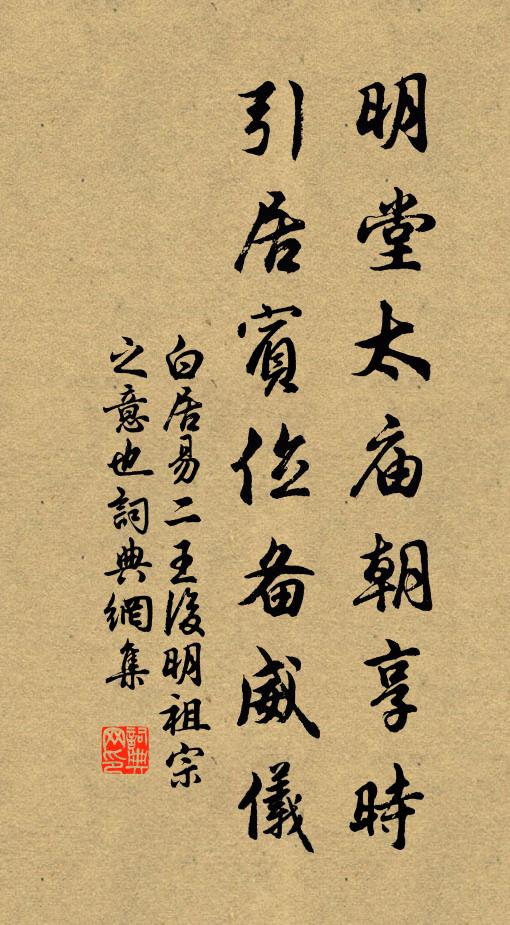 明堂太庙朝享時
引居賓位备威儀
白居易二王後明祖宗
之意也詞典網集
詞典网印